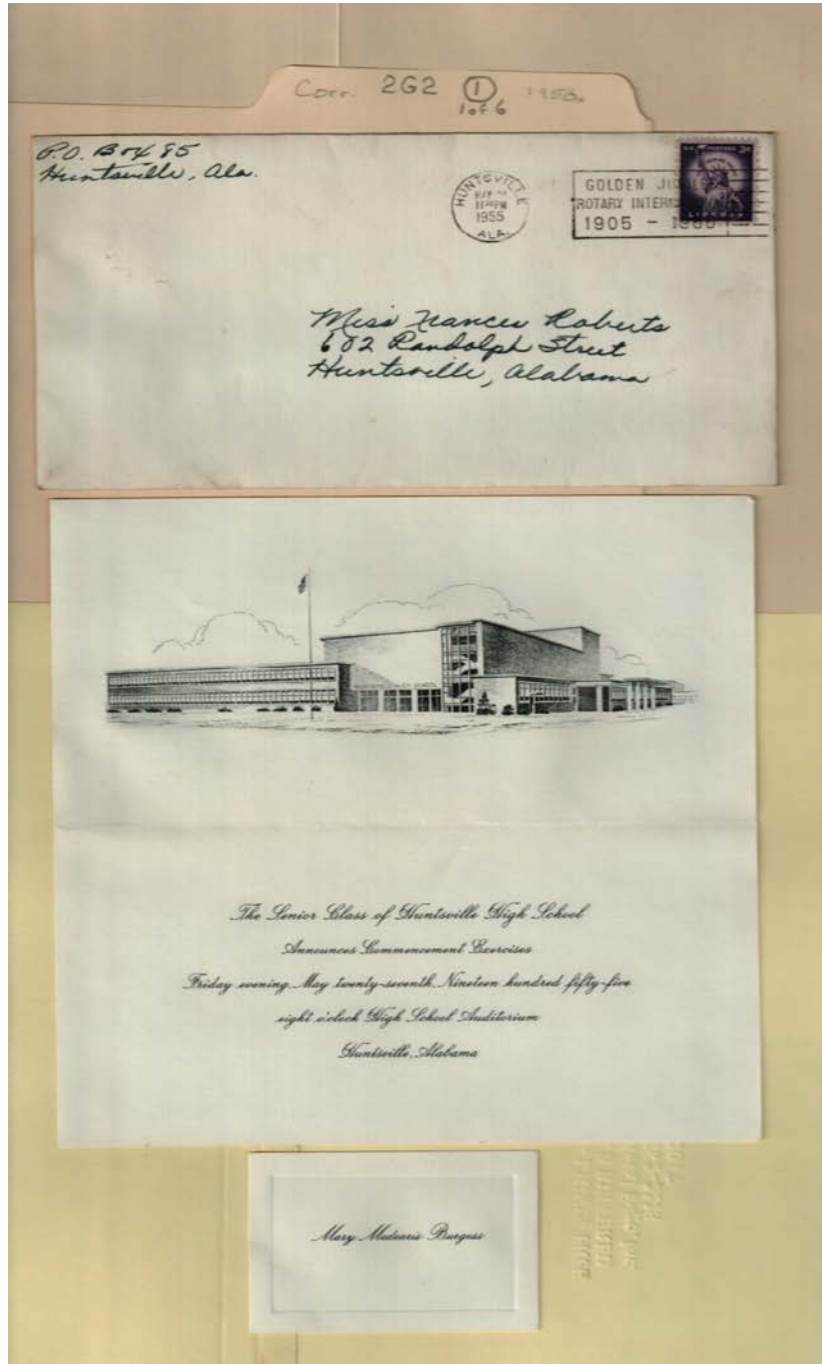 Corr. 2G2 1 1955.
1 of 6
P.O. Box 85
Huntsville, Ala.
HUNTSVILLE
MAY
PM
1955
ALA.
GOLDEN
ROTARY
1905 -
LIBERTY
Miss Frances Roberts
602 Randolph Street
Huntsville, Alabama
The Senior Class of Huntsville High School
Announces Commencement Exercises
Friday evening, May twenty-seventh, Nineteen hundred fifty-five
eight o'clock High School Auditorium
Huntsville, Alabama
Mary Medearis Burgess